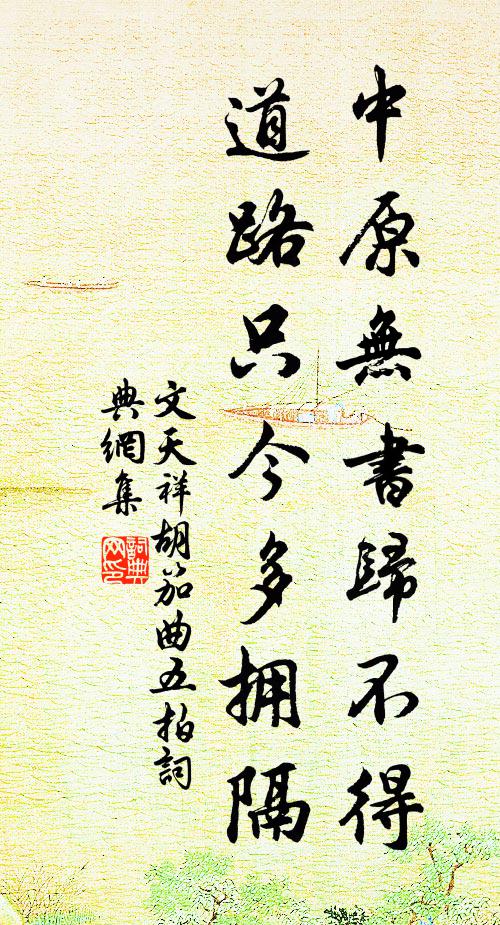 中原無書歸不得
道路只今多拥隔
文天祥胡笳曲五拍詞
典網集
詞典網印